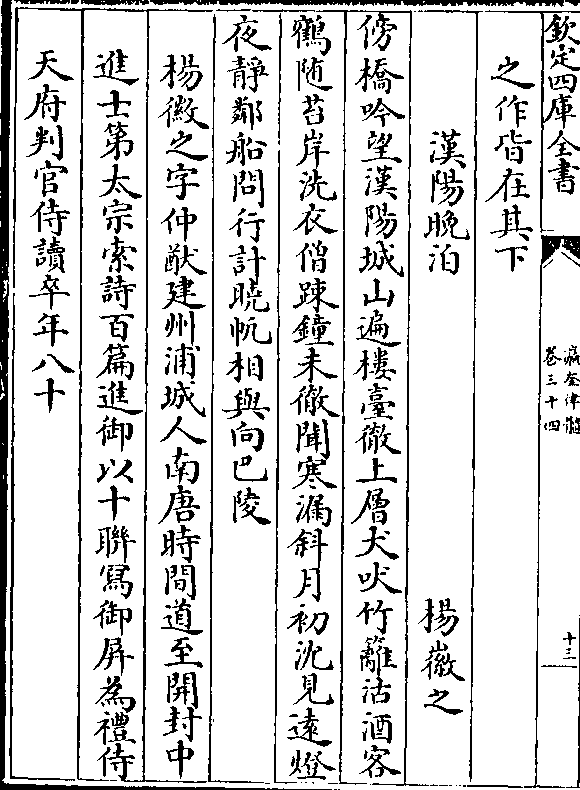 欽定四庫全書
瀛奎律髓
卷三十四
十三
之作皆在其下
漢陽晚泊
楊徽之
傍橋吟望漢陽城山遍樓臺徹上層犬吠竹籬沽酒客
鶴隨苔岸洗衣僧踈鐘未徹聞寒漏斜月初沈見遠燈
夜静鄰船問行計曉帆相與向巴陵
楊徽之字仲猷建州浦城人南唐時間道至開封中
進士第太宗索詩百篇進御以十聯寫御屏為禮侍
天府判官侍讀卒年八十